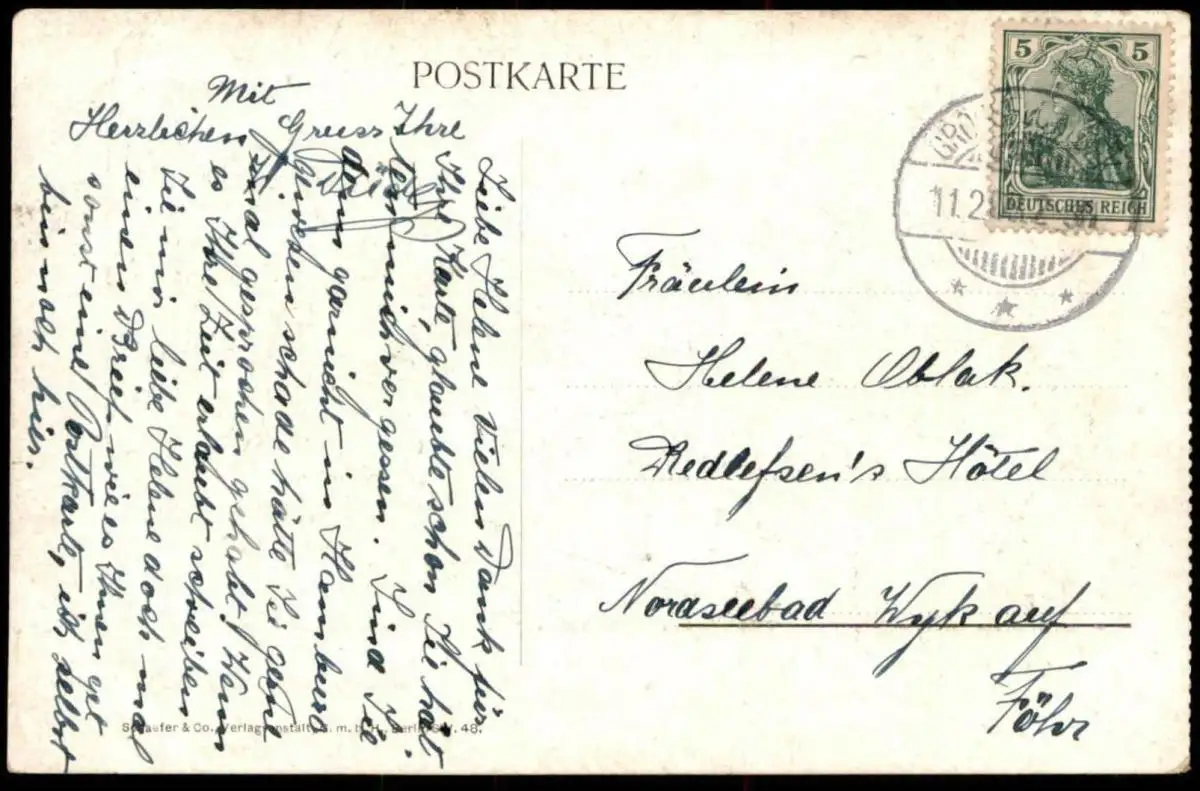 POSTKARTE
5 5
DEUTSCHES REICH
11.2
Liebe Helene Vielen Dank für
Ihre Karte, glaubte schon Sie hät
ten mich vergessen. Sind Sie
denn garnicht in Hamburg
Gewesen schade hätte Sie gern
mal gesprochen gehabt. Wenn
es Ihre Zeit erlaubt schreiben
Sie mir liebe Helene doch mal
einen Brief wie es Ihnen get
sonst eine Postkarte, ich selbst
bin noch hier.
Mit
Herzlichen Gruss Ihre
Fräulein
Helene Oblak.
Redlefsen's Hôtel
Nordseebad Wyk auf
Föhr
Schaefer & Co., Verlagsanstalt, G. m. b. H., Berlin SW. 48.